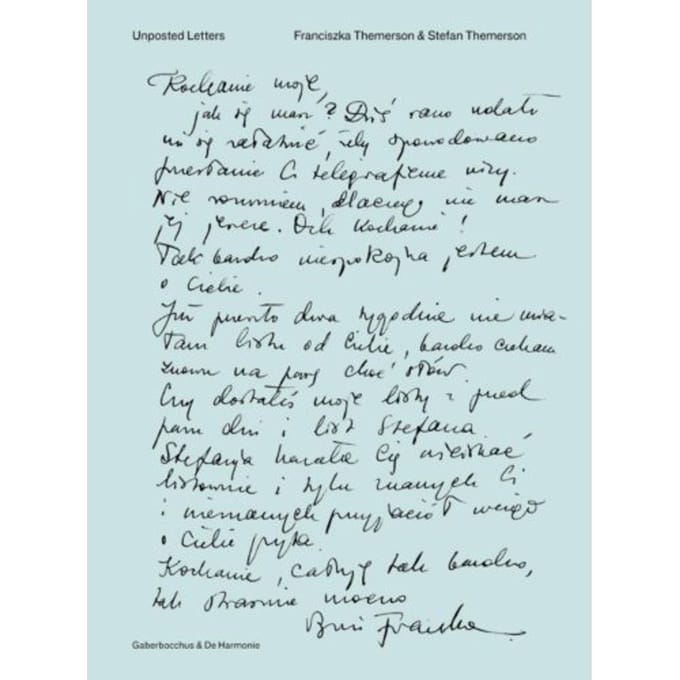 Unposted Letters
Franciszka Themerson & Stefan Themerson
Kochanie moje,
jak się masz? Dziś rano udało
mi się załatwić, żeby spowodowano
przesłanie Ci telegraficzne wizy.
Nie rozumiem, dlaczego nie masz
jej jeszcze. Och Kochanie!
Tak bardzo niespokojna jestem
o Ciebie.
Już przeszło dwa tygodnie nie mia-
łam listu od Ciebie, bardzo czekam
znowu na parę choć słów.
Czy dostałeś moje listy z przed
paru dni i list Stefana
Stefania kazała Cię uściskać
listownie i tylu znanych Ci
i nieznanych przyjaciół wciąż
o Ciebie pyta.
Kochanie, całuję tak bardzo,
tak strasznie mocno
Franka
Gaberbocchus & De Harmonie